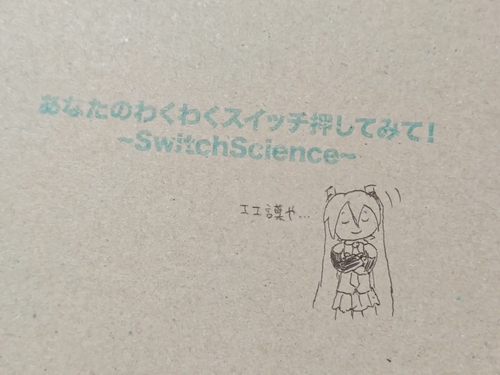 あなたのわくわくスイッチ押してみて!
~SwitchScience~
エエ言葉や...